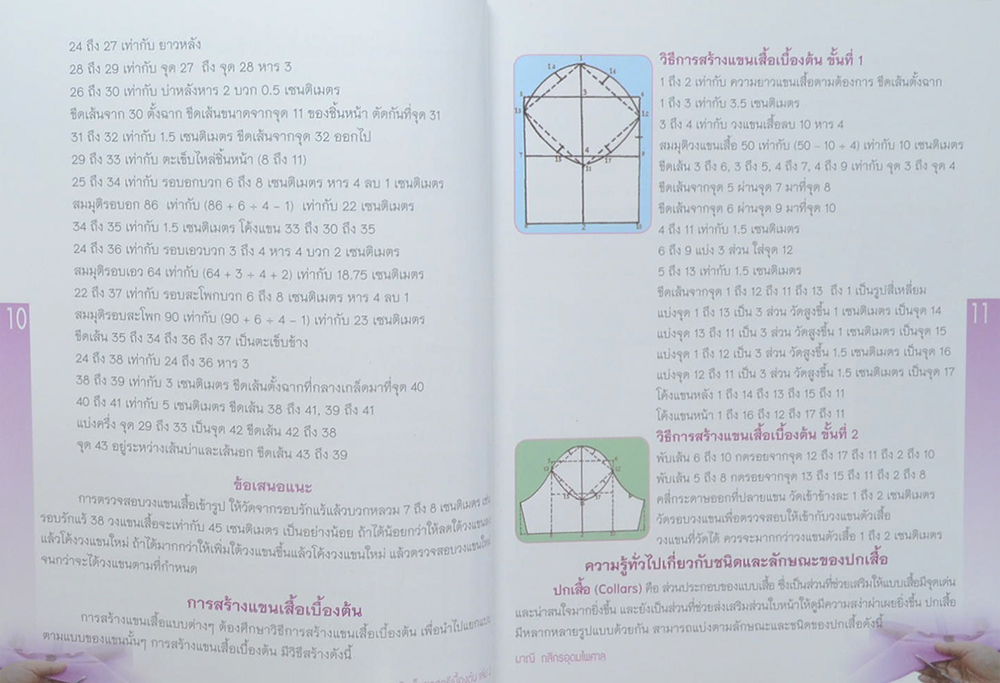 24 ถึง 27 เท่ากับ ยาวหลัง
28 ถึง 29 เท่ากับ จุด 27 ถึง จุด 28 หาร 3
26 ถึง 30 เท่ากับ บ่าหลังหาร 2 บวก 0.5 เซนติเมตร
ขีดเส้นจาก 30 ตั้งฉาก ขีดเส้นขนาดจากจุด 11 ของชิ้นหน้า ตัดกันที่จุด 31
31 ถึง 32 เท่ากับ 1.5 เซนติเมตร ขีดเส้นจากจุด 32 ออกไป
29 ถึง 33 เท่ากับ ตะเข็บไหล่ชิ้นหน้า (8 ถึง 11)
25 ถึง 34 เท่ากับ รอบอกบวก 6 ถึง 8 เซนติเมตร หาร 4 ลบ 1 เซนติเมตร
สมมุติรอบอก 86 เท่ากับ (86 + 6 ÷ 4 – 1) เท่ากับ 22 เซนติเมตร
34 ถึง 35 เท่ากับ 1.5 เซนติเมตร โค้งแขน 33 ถึง 30 ถึง 35
24 ถึง 36 เท่ากับ รอบเอวบวก 3 ถึง 4 หาร 4 บวก 2 เซนติเมตร
สมมุติรอบเอว 64 เท่ากับ (64 + 3 ÷ 4 + 2) เท่ากับ 18.75 เซนติเมตร
22 ถึง 37 เท่ากับ รอบสะโพกบวก 6 ถึง 8 เซนติเมตร หาร 4 ลบ 1
สมมุติรอบสะโพก 90 เท่ากับ (90 + 6 ÷ 4 – 1) เท่ากับ 23 เซนติเมตร
ขีดเส้น 35 ถึง 34 ถึง 36 ถึง 37 เป็นตะเข็บข้าง
24 ถึง 38 เท่ากับ 24 ถึง 36 หาร 3
38 ถึง 39 เท่ากับ 3 เซนติเมตร ขีดเส้นตั้งฉากที่กลางเกล็ดมาที่จุด 40
40 ถึง 41 เท่ากับ 5 เซนติเมตร ขีดเส้น 38 ถึง 41, 39 ถึง 41
แบ่งครึ่ง จุด 29 ถึง 33 เป็นจุด 42 ขีดเส้น 42 ถึง 38
จุด 43 อยู่ระหว่างเส้นบ่าและเส้นอก ขีดเส้น 43 ถึง 39
ข้อเสนอแนะ
การตรวจสอบวงแขนเสื้อเข้ารูป ให้วัดจากรอบรักแร้แล้วบวกหลวม 7 ถึง 8 เซนติเมตร เช่น
รอบรักแร้ 38 วงแขนเสื้อจะเท่ากับ 45 เซนติเมตร เป็นอย่างน้อย ถ้าได้น้อยกว่าให้ลดใต้วงแขนลง
แล้วโค้งวงแขนใหม่ ถ้าได้มากกว่าให้เพิ่มใต้วงแขนขึ้นแล้วโค้งวงแขนใหม่ แล้วตรวจสอบวงแขนใหม่
จนกว่าจะได้วงแขนตามที่กำหนด
การสร้างแขนเสื้อเบื้องต้น
การสร้างแขนเสื้อแบบต่างๆ ต้องศึกษาวิธีการสร้างแขนเสื้อเบื้องต้น เพื่อนำไปแยกแบบ
ตามแบบของแขนนั้นๆ การสร้างแขนเสื้อเบื้องต้น มีวิธีสร้างดังนี้
10
วิธีการสร้างแขนเสื้อเบื้องต้น ขั้นที่ 1
1 ถึง 2 เท่ากับ ความยาวแขนเสื้อตามต้องการ ขีดเส้นตั้งฉาก
1 ถึง 3 เท่ากับ 3.5 เซนติเมตร
3 ถึง 4 เท่ากับ วงแขนเสื้อลบ 10 หาร 4
สมมุติวงแขนเสื้อ 50 เท่ากับ (50 – 10 ÷ 4) เท่ากับ 10 เซนติเมตร
ขีดเส้น 3 ถึง 6, 3 ถึง 5, 4 ถึง 7, 4 ถึง 9 เท่ากับ จุด 3 ถึง จุด 4
ขีดเส้นจากจุด 5 ผ่านจุด 7 มาที่จุด 8
ขีดเส้นจากจุด 6 ผ่านจุด 9 มาที่จุด 10
4 ถึง 11 เท่ากับ 1.5 เซนติเมตร
6 ถึง 9 แบ่ง 3 ส่วน ใส่จุด 12
5 ถึง 13 เท่ากับ 1.5 เซนติเมตร
ขีดเส้นจากจุด 1 ถึง 12 ถึง 11 ถึง 13 ถึง 1 เป็นรูปสี่เหลี่ยม
แบ่งจุด 1 ถึง 13 เป็น 3 ส่วน วัดสูงขึ้น 1 เซนติเมตร เป็นจุด 14
แบ่งจุด 13 ถึง 11 เป็น 3 ส่วน วัดสูงขึ้น 1 เซนติเมตร เป็นจุด 15
แบ่งจุด 1 ถึง 12 เป็น 3 ส่วน วัดสูงขึ้น 1.5 เซนติเมตร เป็นจุด 16
แบ่งจุด 12 ถึง 11 เป็น 3 ส่วน วัดสูงขึ้น 1.5 เซนติเมตร เป็นจุด 17
โค้งแขนหลัง 1 ถึง 14 ถึง 13 ถึง 15 ถึง 11
โค้งแขนหน้า 1 ถึง 16 ถึง 12 ถึง 17 ถึง 11
วิธีการสร้างแขนเสื้อเบื้องต้น ขั้นที่ 2
พับเส้น 6 ถึง 10 กดรอยจากจุด 12 ถึง 17 ถึง 11 ถึง 2 ถึง 10
พับเส้น 5 ถึง 8 กดรอยจากจุด 13 ถึง 15 ถึง 11 ถึง 2 ถึง 8
คลี่กระดาษออกที่ปลายแขน วัดเข้าข้างละ 1 ถึง 2 เซนติเมตร
วัดรอบวงแขนเพื่อตรวจสอบให้เข้ากับวงแขนตัวเสื้อ
วงแขนที่วัดได้ ควรจะมากกว่าวงแขนตัวเสื้อ 1 ถึง 2 เซนติเมตร
ความรู้ทั่วไปเกี่ยวกับชนิดและลักษณะของปกเสื้อ
ปกเสื้อ (Collars) คือ ส่วนประกอบของแบบเสื้อ ซึ่งเป็นส่วนที่ช่วยเสริมให้แบบเสื้อมีจุดเด่น
และน่าสนใจมากยิ่งขึ้น และยังเป็นส่วนที่ช่วยส่งเสริมส่วนใบหน้าให้ดูมีความสง่าผ่าเผยยิ่งขึ้น ปกเสื้อ
มีหลากหลายรูปแบบด้วยกัน สามารถแบ่งตามลักษณะและชนิดของปกเสื้อดังนี้
มาณี กสิกรอุดมไพศาล
11